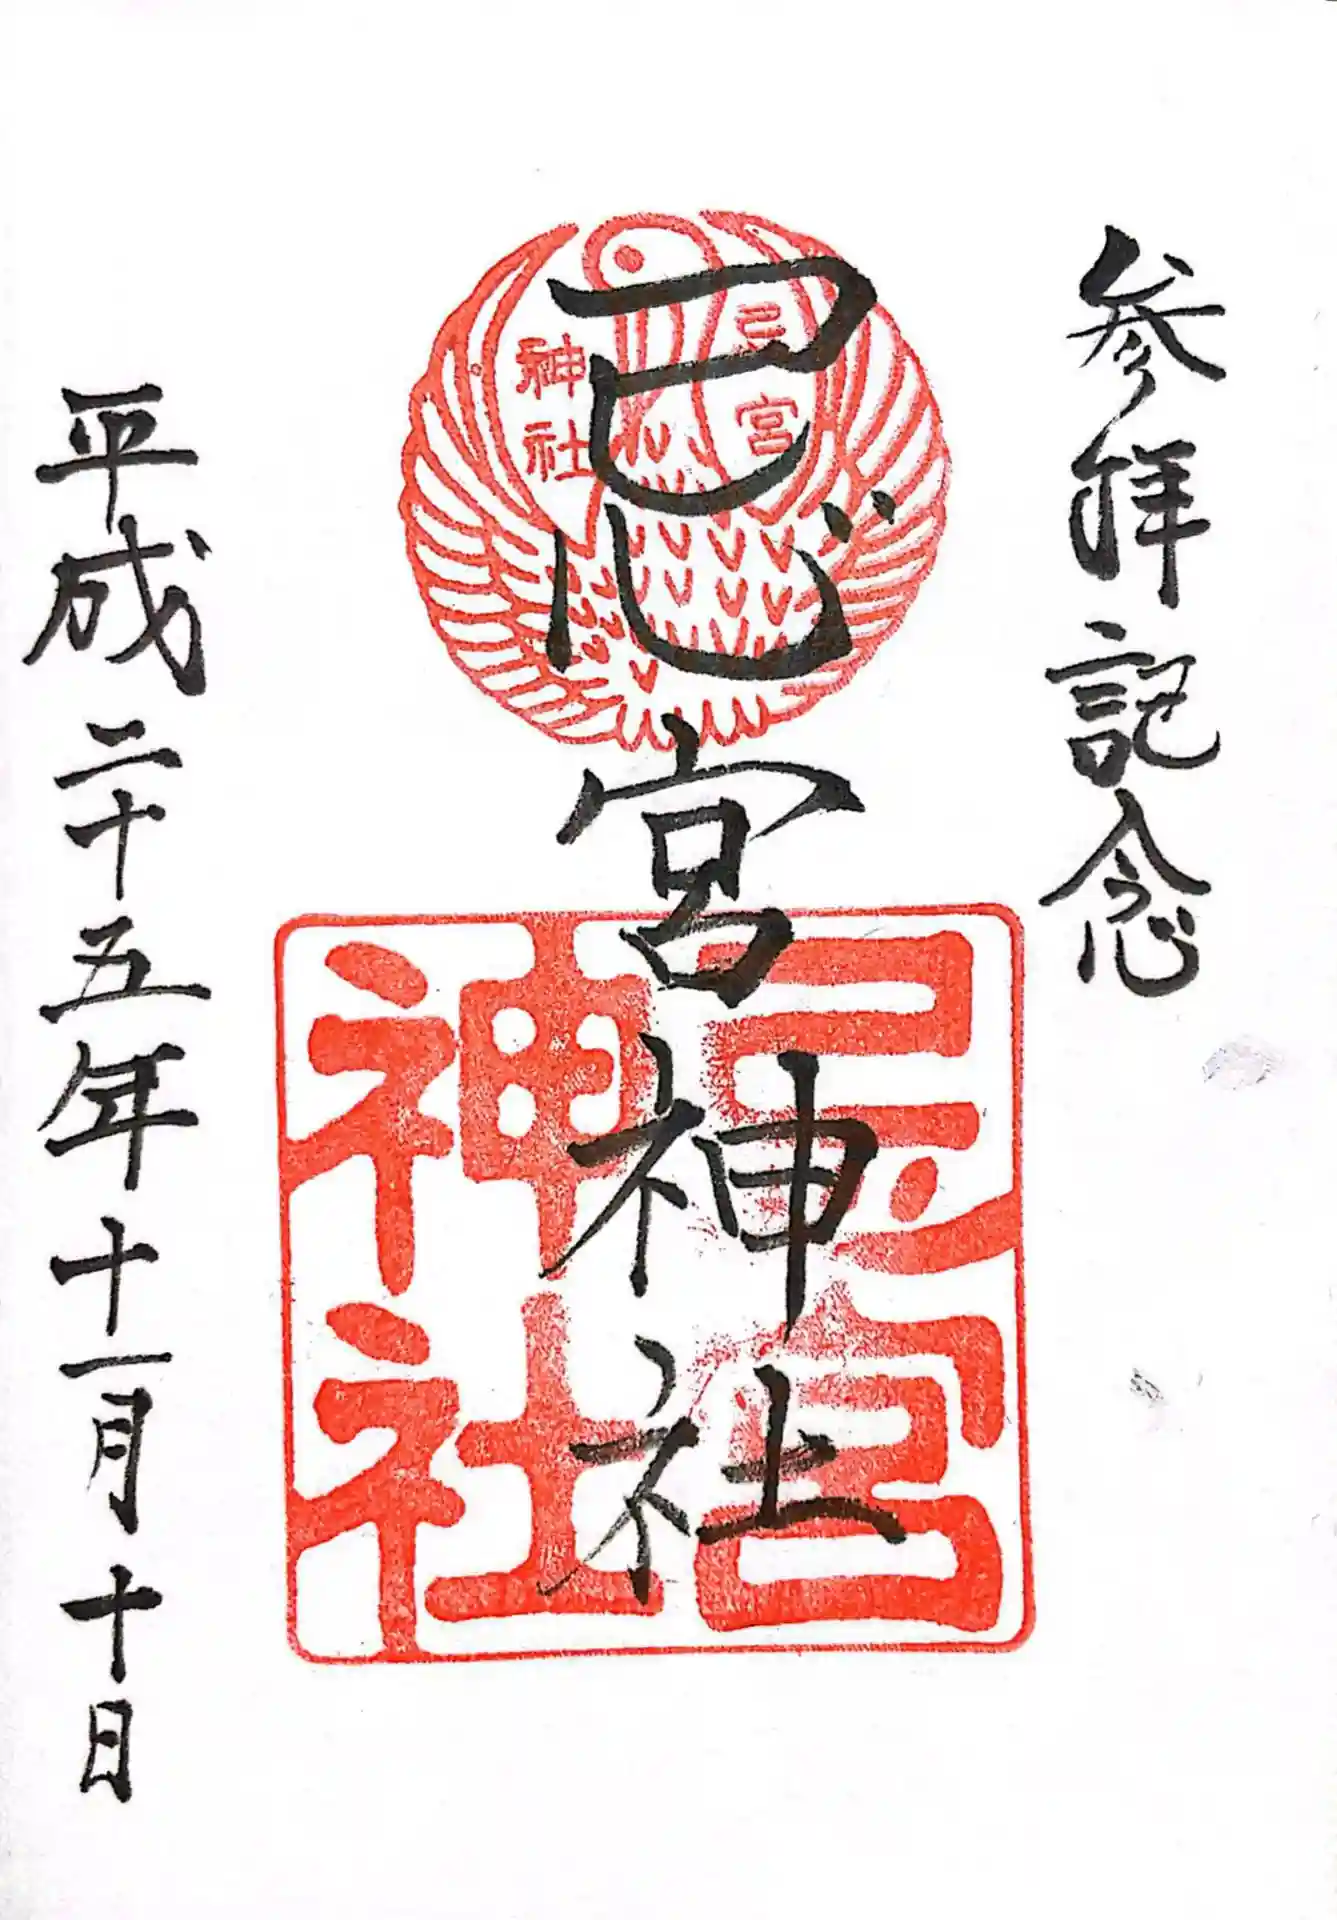 参拝記念
忌宮神社
忌宮
神社
忌宮
神社
平成二十五年十一月十日